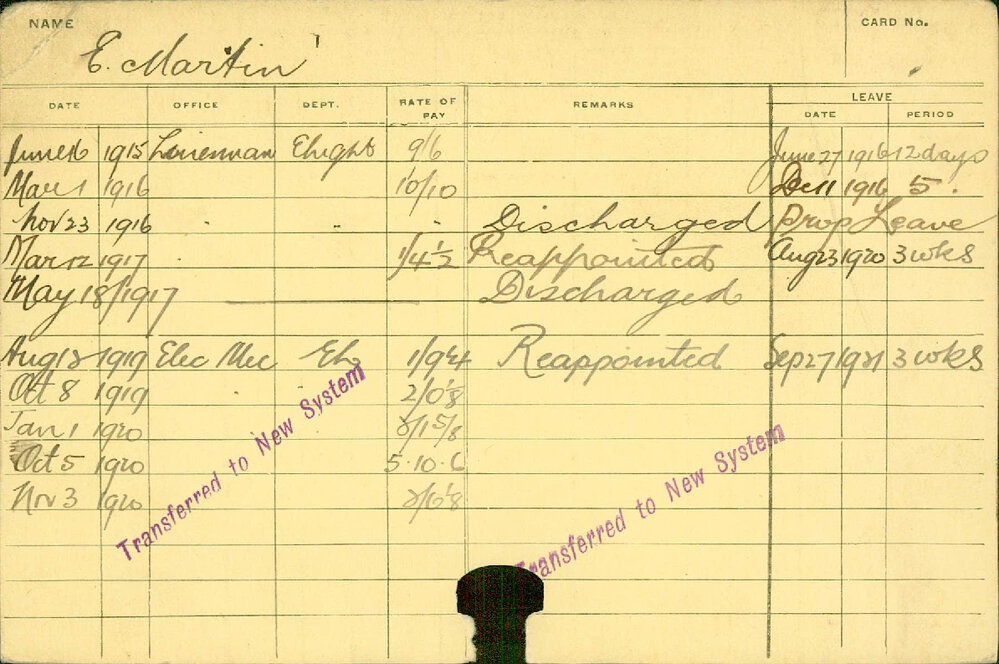 NAME CARD No.
E. Martin
DATE OFFICE DEPT. RATE OF PAY REMARKS LEAVE
DATE PERIOD
June 16 1915 Linesman Elight 9/6 June 27 1916 12 days
Mar 1 1916 " 10/10 Dec 11 1916 5.
Nov 23 1916 " " " Discharged Prop Leave
Mar 12 1917 " 1/4½ Reappointed Aug 23 1920 3 wks
May 18/1917 Discharged
Aug 12 1919 Elec Mec 1/9¾ Reappointed Sep 27/1921 3 wks
Oct 8 1919 2/0⅛
Jan 1 1920
Oct 5 1920 5.10.6
Nov 3 1920
Transferred to New System
Transferred to New System